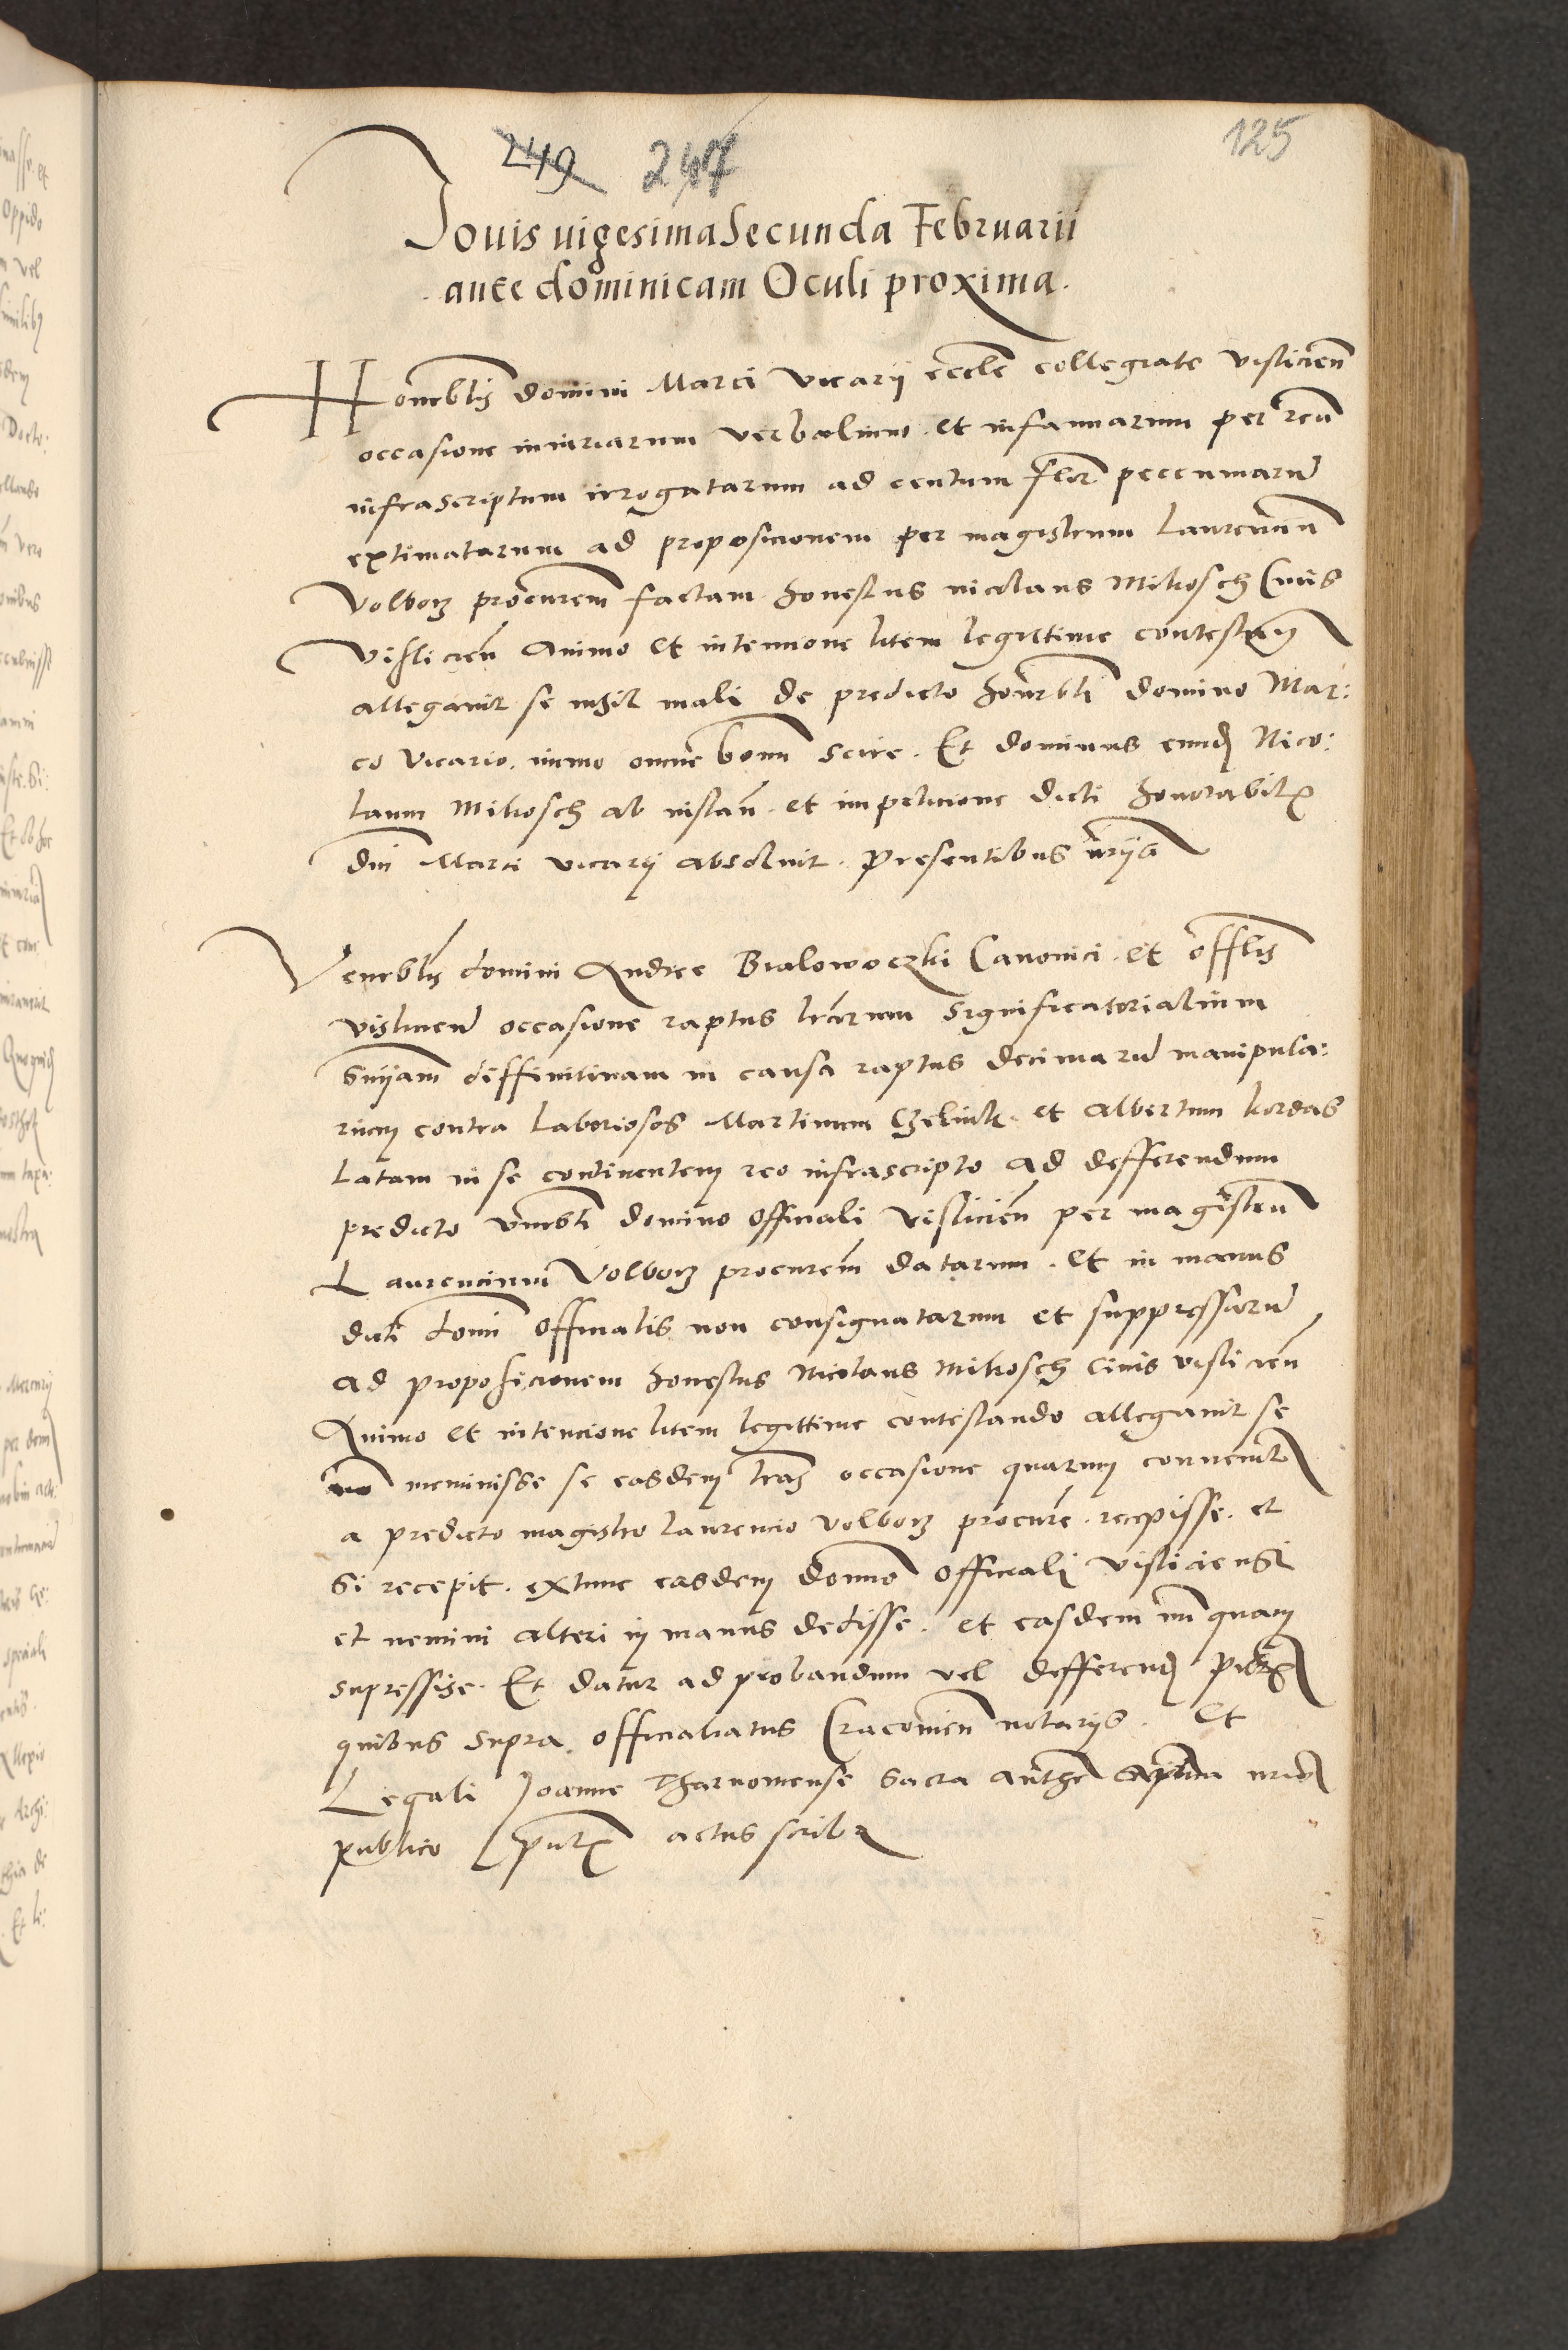 249 247
125
Jovis vigesimasecunda Februarii
ante dominicam Oculi proxima.
Honorblis domini Marci vicarij eccle collegiate vislicien
occasione iniuriarum verbalium et infamiarum per reum
infrascriptum irrogatarum ad centum flor peccuniarum
extimatarum ad proposicionem per magistrum Laurencium
Volborz procurem factam honestus nicolaus Mikosch Civis
vislicien Animo et intencione litem legittime contestan
allegavit se nihil mali de predicto honorbli domino Mar:
co vicario, immo omne bonum scire. Et dominus eund Nico:
laum Mikosch ab instan et impeticione dicti honorabilis
dni Marci vicarij absolvit. Presentibus nrijs
Venerblis domini Andree Bialowoczki Canonici et offlis
vislicien occasione raptus lrarum significatorialium
snijam diffinitivam in causa raptus decimarum manipula:
rium contra laboriosos Martinum et Albertum kordas
latam in se continentem reo infrascripto ad defferendum
predicto venerbli domino officiali vislicien per magistrum
Laurencium Volborz procurem datarum. Et in manus
dicti domi officialis non consignatarum et suppressarum
ad proposicionem honestus Nicolaus Mikosch civis vislicien
Animo et intencione litem legittime contestando allegavit se
no meminisse se easdem lras occasione quarum convenitur
a predicto magistro laurencio volborz procure recepisse. et
si recepit. extunc easdem domino officiali visliciensi
et nemini alteri in manus dedisse. et easdem nunquam
supressise. Et datur ad probandum vel defferend pntibs
quibus supra. officialatus Cracovien notarijs. Et
Legali Joanne Tharnomense sacra authe aplica
publico pntis actus scriba